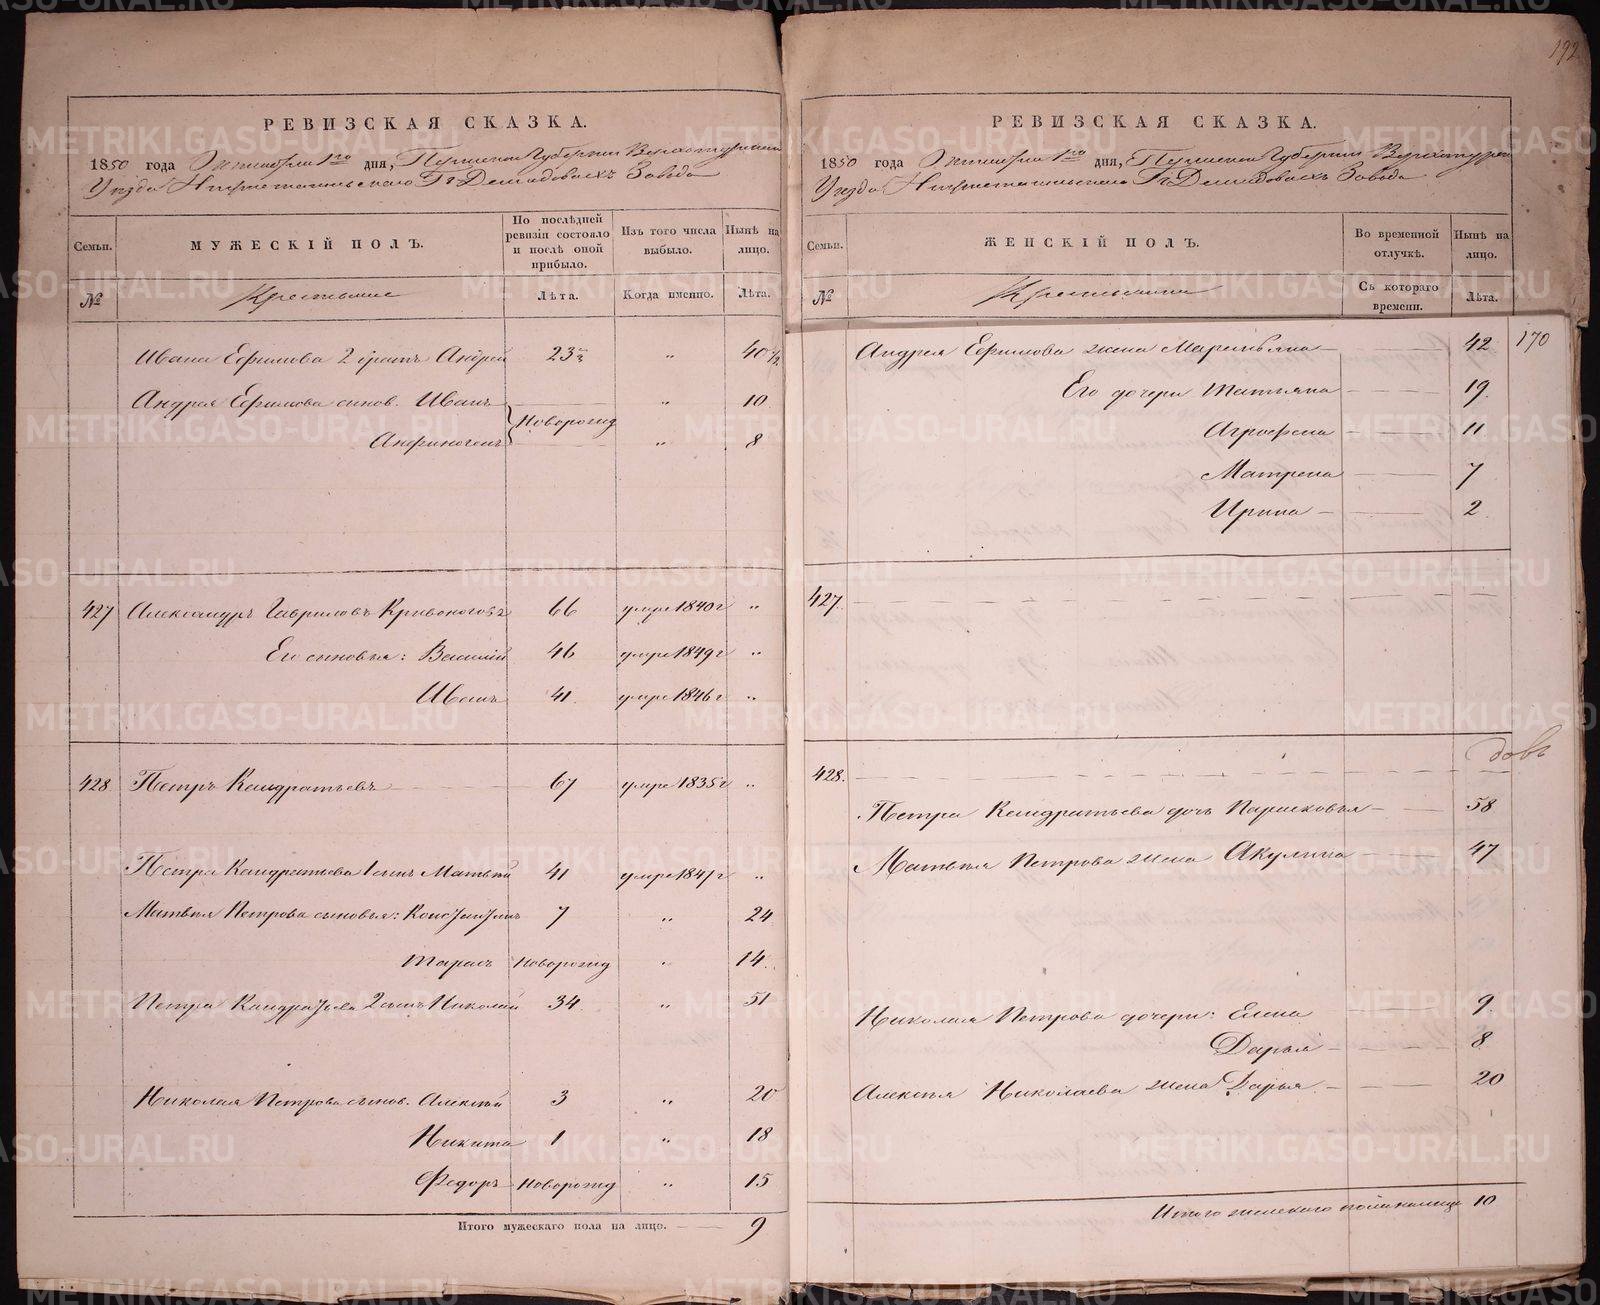 192
РЕВИЗСКАЯ СКАЗКА.
1850 года Октября 1го дня, Пермской Губернии Верхотурскаго
Уѣзда Нижнетагильскаго Гг Демидовыхъ Завода
Семьи.
МУЖЕСКІЙ ПОЛЪ.
По послѣдней ревизіи состояло и послѣ оной прибыло.
Изъ того числа выбыло.
Нынѣ на лицо.
№
Крестьяне
Лѣта.
Когда именно.
Лѣта.
Ивана Ефимова 2 братъ Андрей 23 1/2 „ 40 1/2
Андрея Ефимова сынов. Иванъ Новорожд „ 10
Анфиногенъ „ 8
427 Александръ Гавриловъ Кривоноговъ 66 умре 1840 г „
Его сыновья: Василій 46 умре 1849 г „
Иванъ 41. умре 1846 г „
428. Петръ Кандратьевъ 67 умре 1835 г „
Петра Кандратьева 1 сынъ Матвѣй 41 умре 1847 г „
Матвѣя Петрова сыновья: Констянтинъ 7 „ 24
Тарасъ Новорожд „ 14.
Петра Кандратьева 2 сынъ Николай 34 „ 51
Николая Петрова сынов. Алексѣй 3 „ 20
Никита 1 „ 18
Федоръ Новорожд „ 15
Итого мужескаго пола на лицо. 9
РЕВИЗСКАЯ СКАЗКА.
1850 года Октября 1го дня, Пермской Губернии Верхотурскаго
Уѣзда Нижнетагильскаго Гг Демидовыхъ Завода
Семьи.
ЖЕНСКІЙ ПОЛЪ.
Во временной отлучкѣ.
Нынѣ на лицо.
№
Крестьянки
Съ котораго времени.
Лѣта.
170
Андрея Ефимова жена Маремьяна 42
Его дочери Татьяна 19.
Агрофена 11
Матрена 7
Ирина 2
427.
428.
довъ
Петра Кандратьева дочь Парасковья 58
Матвѣя Петрова жена Акулина 47
Николая Петрова дочери: Елена 9.
Дарья 8
Алексѣя Николаева жена Дарья 20
Итого женскаго пола налицо 10
METRIKI.GASO-URAL.RU